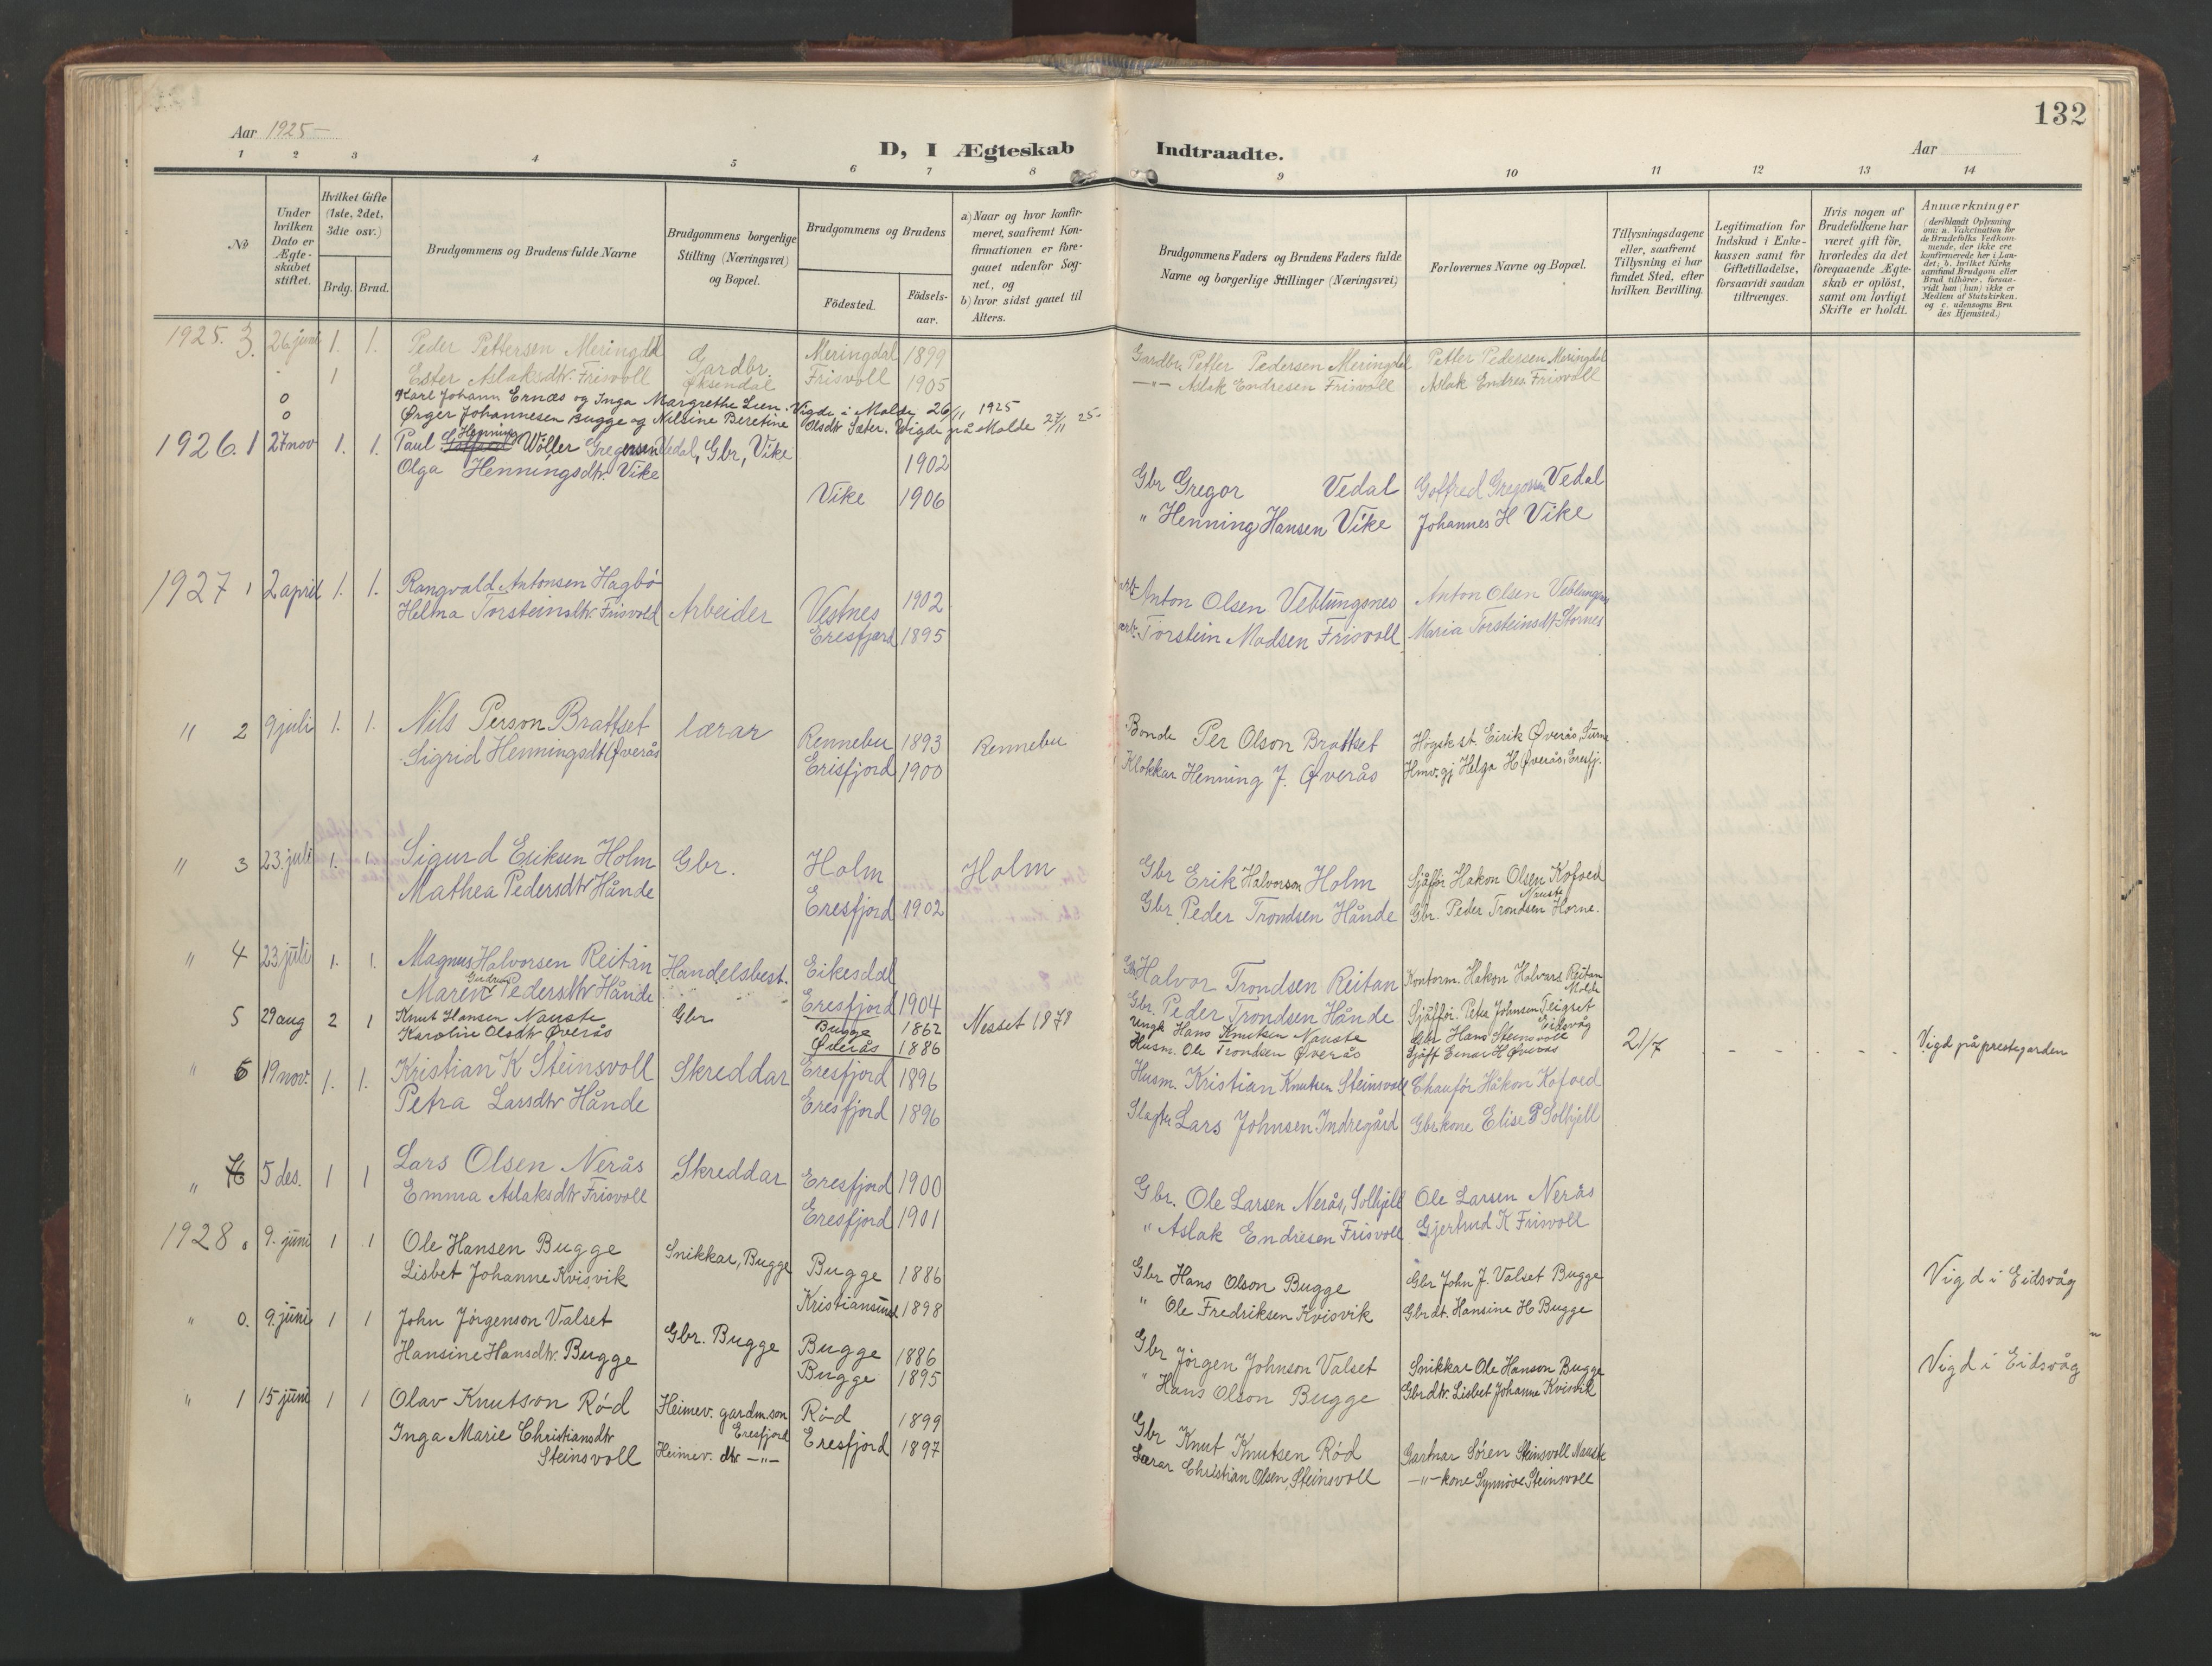 132
Aar 1925-
D, I Ægteskab Indtraadte.
Aar
1 2 3 4 5 6 7 8 9 10 11 12 13 14
No
Under hvilken Dato er Ægteskabet stiftet.
Hvilket Gifte (1ste, 2det, 3die osv.)
Brdg. Brud.
Brudgommens og Brudens fulde Navne
Brudgommens borgerlige Stilling (Næringsvei) og Bopæl.
Brudgommens og Brudens
Födested.
Födselsaar.
a) Naar og hvor konfirmeret, saafremt Konfirmationen er foregaaet udenfor Sognet, og
b) hvor sidst gaaet til Alters.
Brudgommens Faders og Brudens Faders fulde Navne og borgerlige Stillinger (Næringsvei)
Forlovernes Navne og Bopæl.
Tillysningsdagene eller, saafremt Tillysning ei har fundet Sted, efter hvilken Bevilling.
Legitimation for Indskud i Enkekassen samt for Giftetilladelse, forsaavidt saadan tiltrænges.
Hvis nogen af Brudefolkene har været gift för, hvorledes da det foregaaende Ægteskab er oplöst, samt om lovligt Skifte er holdt.
Anmærkninger
(deriblandt Oplysning om: a. Vakcination for de Brudefolks Vedkommende, der ikke ere konfirmerede her i Landet; b. hvilket Kirkesamfund Brudgom eller Brud tilhörer, forsaavidt han (hun) ikke er Medlem af Statskirken. og c. udensogns Brudes Hjemsted.)
1925. 3. 26 juni 1. 1. Peder Pettersen Meringdal Gardbr. Meringdal 1899 Gardbr. Petter Pedersen Meringdal Petter Pedersen Meringdal
1 Ester Aslaksdtr. Frisvoll Øksendal Frisvoll 1905 -"- Aslak Endresen Frisvoll Aslak Endres. Frisvoll
0 Karl Johann Ernæs og Inga Margrethe Lien. Vigde i Molde 26/11 1925
0 Ørger Johannesen Bugge og Nilsine Beretine Olsdtr Sæter. Vigde på Molde 27/11 25-
1926. 1 27 nov 1. 1. Paul Henning Wöller Gregersen Vedal, Gbr, Vike 1902 Gbr Gregor Vedal Goffred Gregorsen Vedal
Olga Henningsdtr. Vike Vike 1906 " Henning Hansen Vike Johannes H Vike
1927 1 2 april 1. 1. Rangvald Antonsen Hagbø Arbeider Vestnes 1902 arb. Anton Olsen Veblungsnes Anton Olsen Veblungsnes
Helma Torsteinsdtr. Frisvold Eresfjord 1895 arb. Torstein Madsen Frisvoll Maria Torsteinsdt Stornes
" 2 9 juli 1. 1. Nils Person Brattset lærar Rennebu 1893 Rennebu Bonde Per Olson Brattset Høgsk.st. Eirik Øverås, Surna
Sigrid Henningsdt Øverås Erisfjord 1900 Klokkar Henning J. Øverås Hmv.gj Helga H Øverås, Eresfj.
" 3 23. juli 1. 1. Sigurd Eriksen Holm Gbr. Holm Holm Gbr Erik Halvorson Holm Sjåfför Hakon Olsen Kofoed
Mathea Pedersdtr Hånde Eresfjord 1902 Gbr. Peder Trondsen Hånde Gbr. Peder Trondsen Horne. Nauste
" 4 23 juli 1. 1. Magnus Halvorsen Reitan Handelsbest. Eikesdal Gbr Halvor Trondsen Reitan Kontorm. Hakon Halvors. Reitan Molde
Maren Gudrun Pedersdtr Hånde " " " Eresfjord 1904 Gbr. Peder Trondsen Hånde Sjåffør. Peter Johnsen Teigset Eidsvåg
5 29 aug 2 1 Knut Hansen Nauste Gbr Bugge 1862 Nesset 1878 Ungk Hans Knutsen Nauste Gbr Hans Steinsvoll 21/7 Vigd på prestegarden
Karoline Olsdtr Øverås Øverås 1886 Husm. Ole Trondsen Øverås Sjåff Einar H Øverås
" 6 19 nov. 1. 1. Kristian K Steinsvoll Skreddar Eresfjord 1896 Husm. Kristian Knutsen Steinsvoll Chaufför Håkon Kofoed
Petra Larsdtr Hånde Eresfjord 1896 Slagter Lars Johnsen Indregård Gbr.kone Elise P Solhjell
" 7 5 des. 1 1 Lars Olsen Nerås Skreddar Eresfjord 1900 Gbr. Ole Larsen Nerås, Solhjell Ole Larsen Nerås
Emma Aslaksdtr Frisvoll Eresfjord 1901 " Aslak Endresen Frisvoll Gjertrud K Frisvoll
1928 0 9. juni 1 1 Ole Hansen Bugge Snikkar, Bugge Bugge 1886 Gbr Hans Olson Bugge Gbr John J. Valset Bugge Vigd i Eidsvåg
Lisbet Johanne Kvisvik Kristiansund 1898 " Ole Fredriksen Kvisvik Gbrdt. Hansine H Bugge
" 0. 9. juni 1 1 John Jörgenson Valset Gbr. Bugge Bugge 1886 Gbr Jörgen Johnson Valset Snikkar Ole Hanson Bugge Vigd i Eidsvåg
Hansine Hansdtr. Bugge Bugge 1895 " Hans Olson Bugge Gbrdtr. Lisbet Johanne Kvisvik
" 1 15 juni 1 1 Olav Knutson Rød Heimev. gardm.son Eresfjord Rød 1899 Gbr Knut Knutsen Rød Gartnar Sören Steinsvoll Nauste
Inga Marie Christiansdtr Steinsvoll Heimev. dtr -"- Eresfjord 1897 Lærar Christian Olsen, Steinsvoll -"- kone Synnöve Steinsvoll